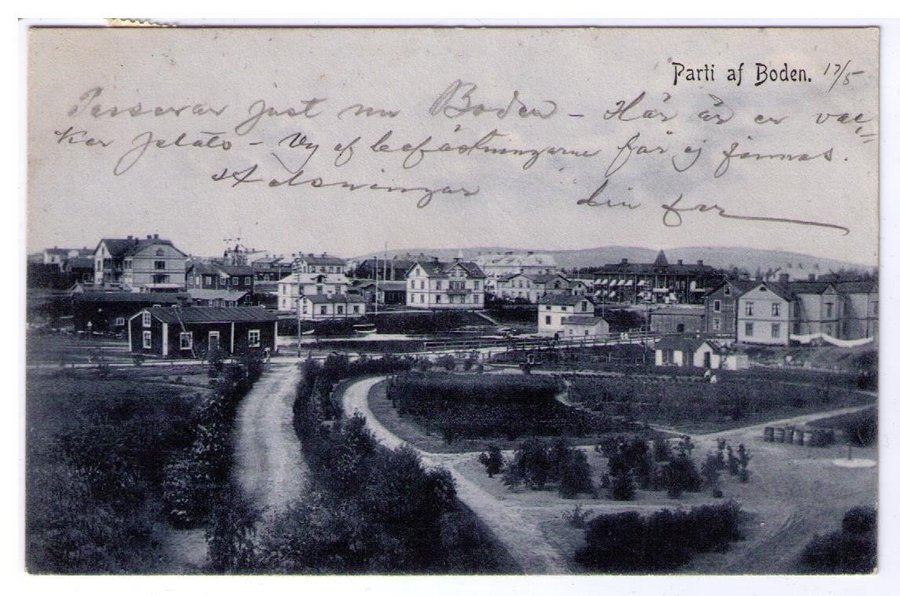 Parti af Boden. 17/5
Passerar just nu Boden – Här är en vac=
ker plats – Vy af befästningarne får ej finnas.
Hälsningar din far